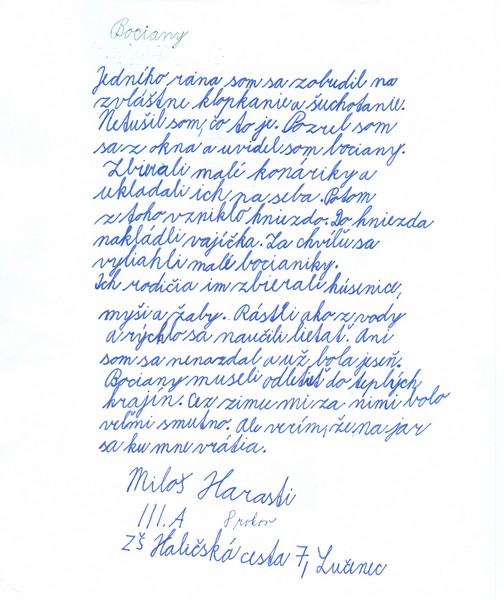 Bociany
Jedného rána som sa zobudil na
zvláštne klopkanie a šuchotanie.
Netušil som, čo to je. Pozrel som
sa z okna a uvidel som bociany.
Zbierali malé konáriky a
ukladali ich na seba. Potom
z toho vzniklo hniezdo. Do hniezda
nakládli vajíčka. Za chvíľu sa
vyliahli malé bocianiky.
Ich rodičia im zbierali húsenice,
myši a žaby. Rástli ako z vody
a rýchlo sa naučili lietať. Ani
som sa nenazdal a už bola jeseň.
Bociany museli odletieť do teplých
krajín. Cez zimu mi za nimi bolo
veľmi smutno. Ale verím, že na jar
sa ku mne vrátia.
Miloš Harasti
III. A 8 rokov
ZŠ Haličská cesta 7, Lučenec